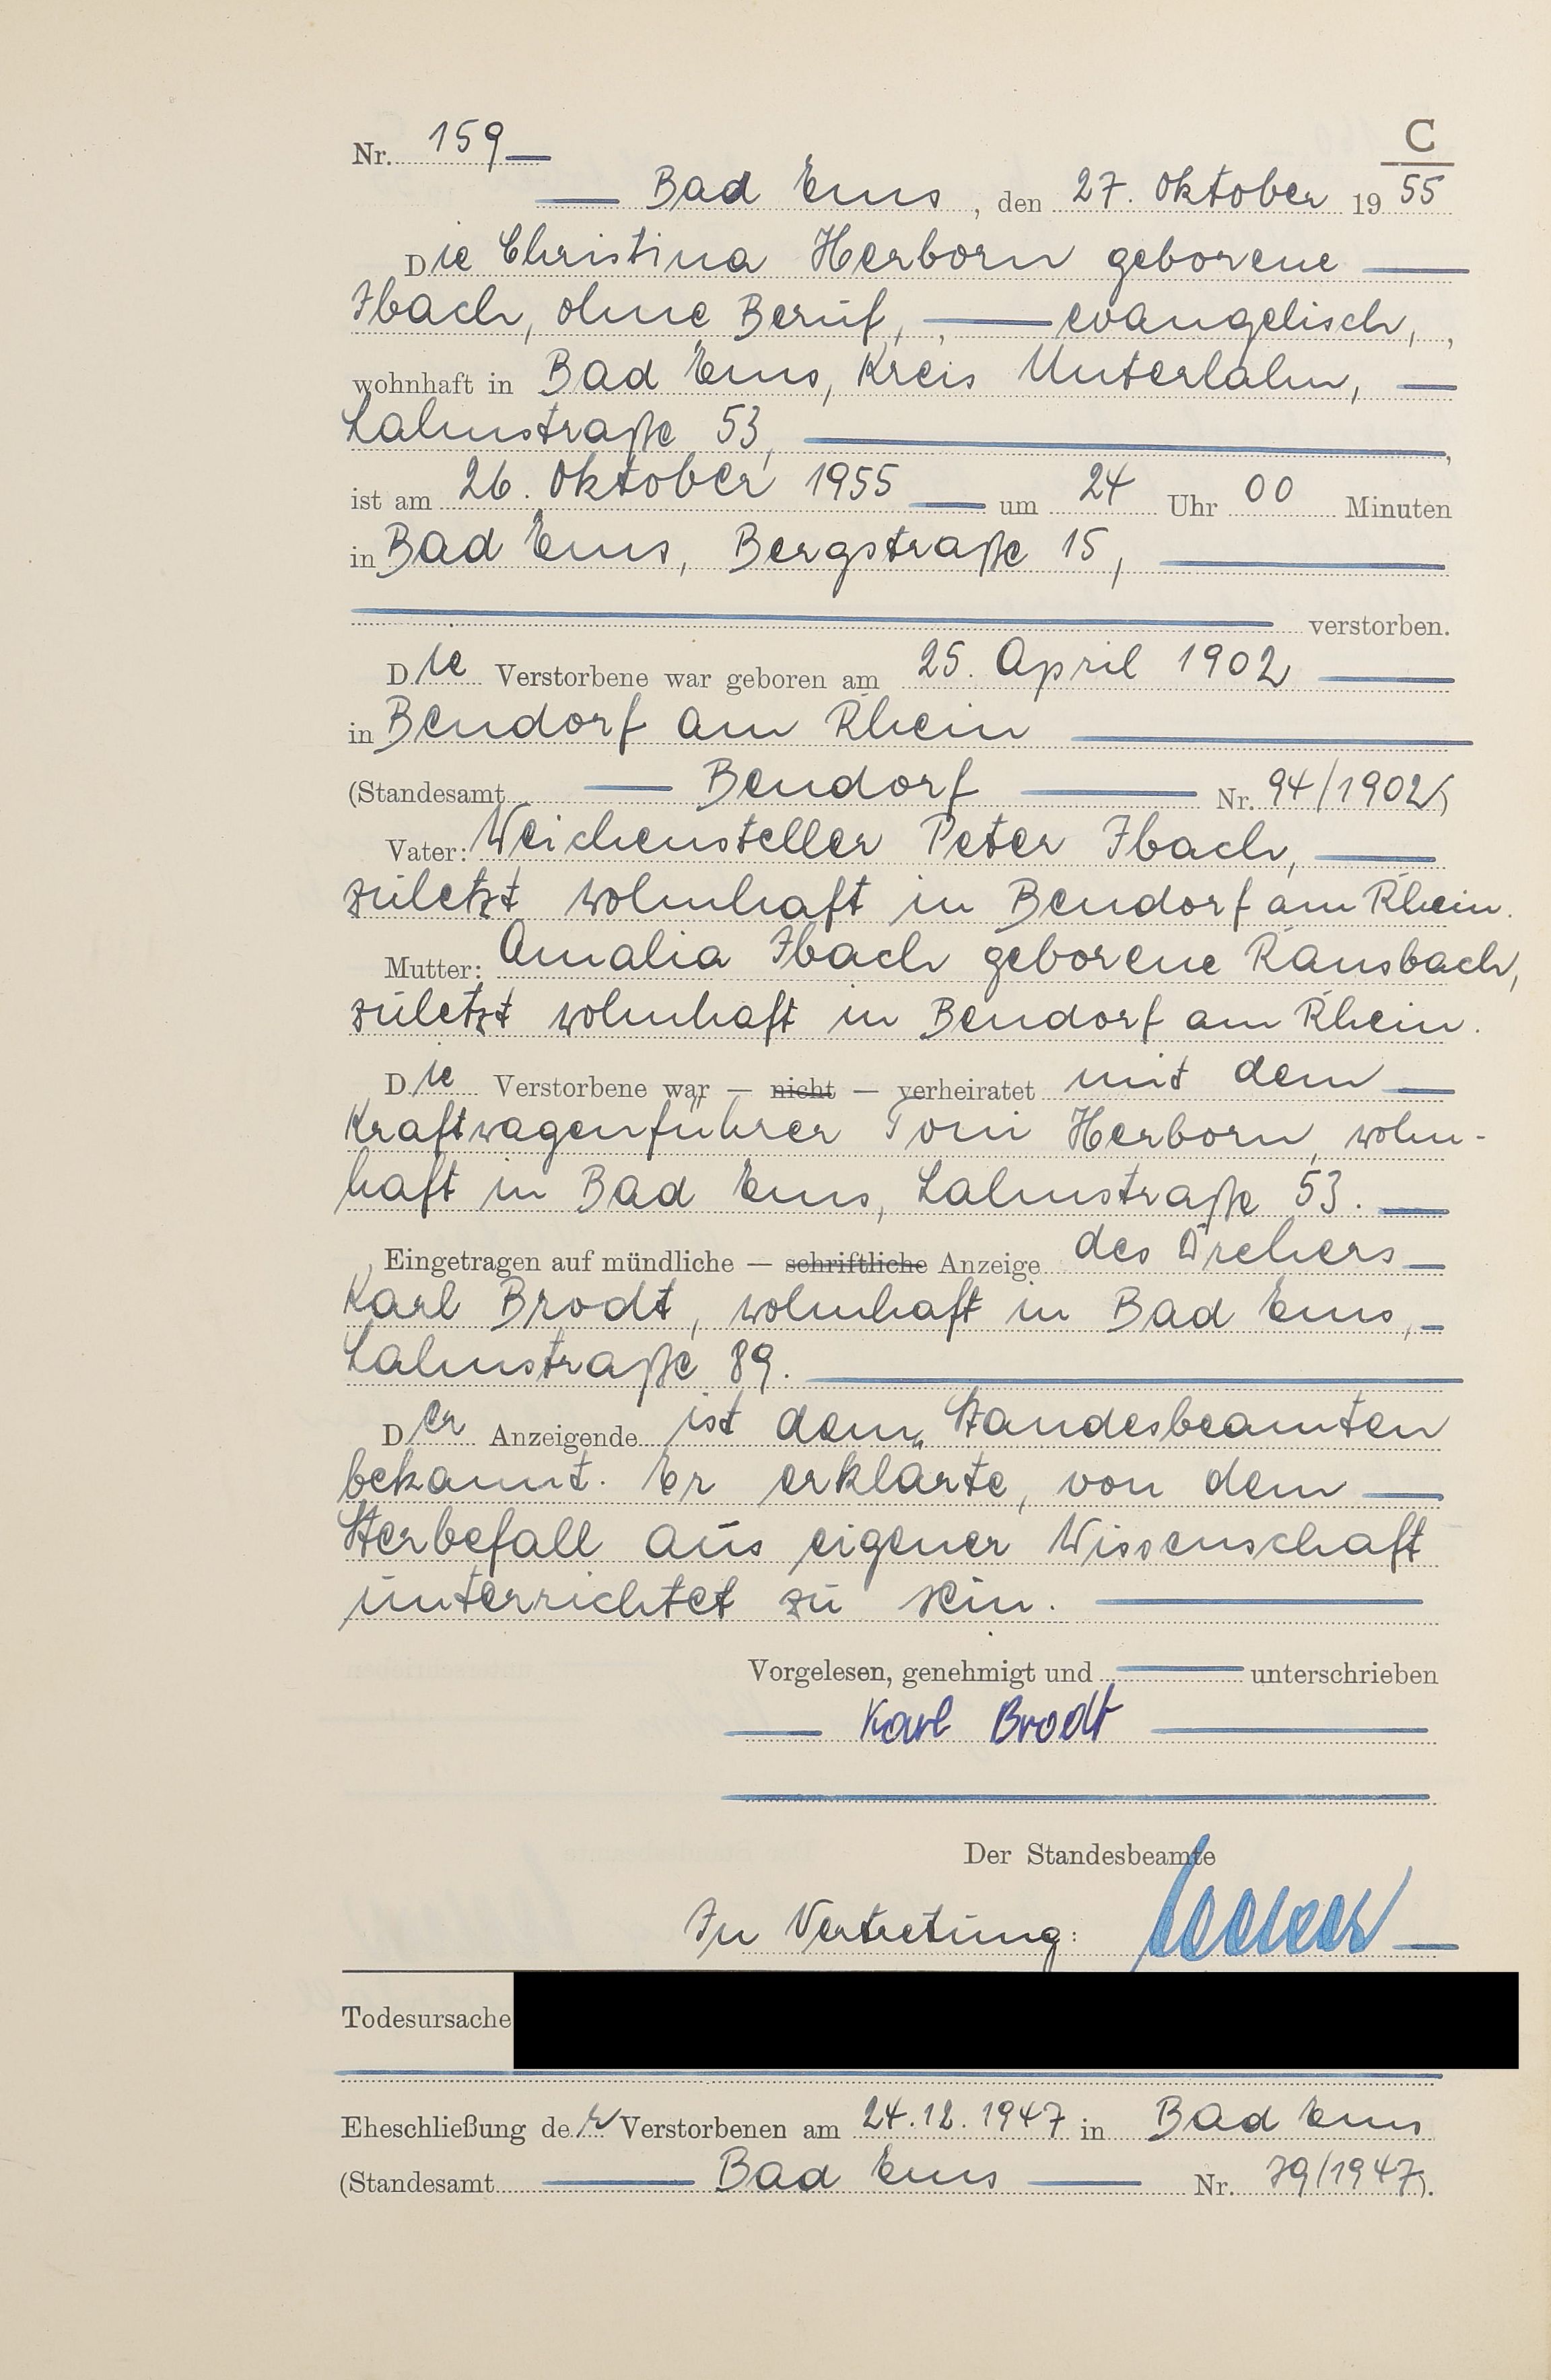 C
Nr. 159
Bad Ems, den 27. Oktober 1955
Die Christina Herborn geborene
Ibach, ohne Beruf, evangelisch,
wohnhaft in Bad Ems, Kreis Unterlahn,
Lahnstraße 53,
ist am 26. Oktober 1955 um 24 Uhr 00 Minuten
in Bad Ems, Bergstraße 15,
verstorben.
Die Verstorbene war geboren am 25. April 1902
in Bendorf am Rhein
(Standesamt Bendorf Nr. 94/1902)
Vater: Weichensteller Peter Ibach,
zuletzt wohnhaft in Bendorf am Rhein.
Mutter: Amalia Ibach geborene Ransbach,
zuletzt wohnhaft in Bendorf am Rhein.
Die Verstorbene war — nicht — verheiratet mit dem
Kraftwagenführer Toni Herborn, wohn-
haft in Bad Ems, Lahnstraße 53.
Eingetragen auf mündliche — schriftliche Anzeige des Drehers
Karl Brodt, wohnhaft in Bad Ems,
Lahnstraße 89.
Der Anzeigende ist dem Standesbeamten
bekannt. Er erklärte, von dem
Sterbefall aus eigener Wissenschaft
unterrichtet zu sein.
Vorgelesen, genehmigt und unterschrieben
Karl Brodt
Der Standesbeamte
In Vertretung:
Todesursache
Eheschließung der Verstorbenen am 24.12.1947 in Bad Ems
(Standesamt Bad Ems Nr. 79/1947).